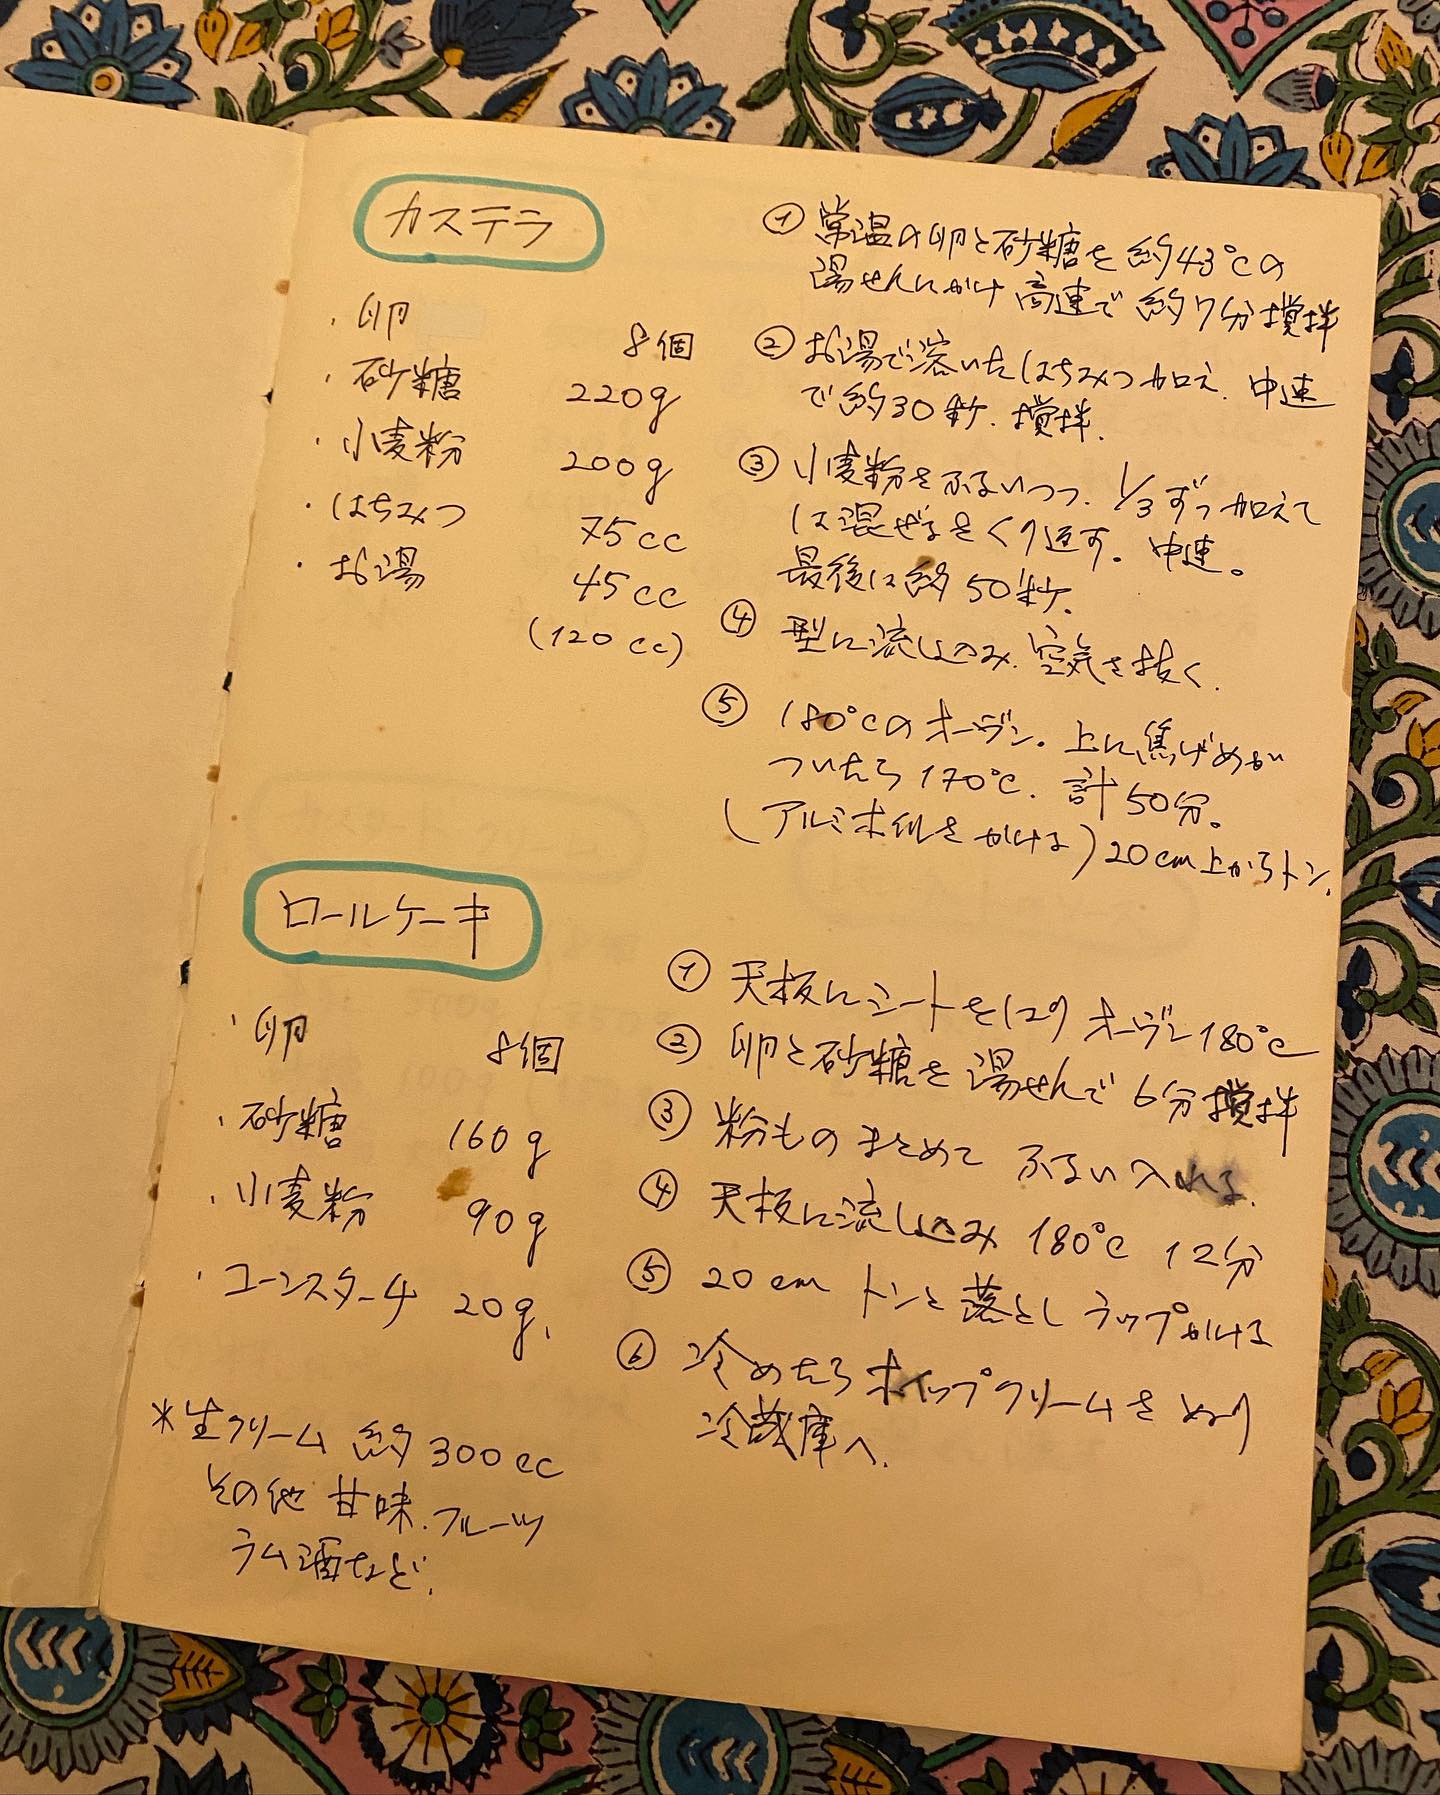 カステラ
・卵 8個
・砂糖 220g
・小麦粉 200g
・はちみつ 75cc
・お湯 45cc
(120cc)
① 常温の卵と砂糖を約43℃の
湯せんにかけ高速で約7分撹拌
② お湯で溶いたはちみつ加え、中速
で約30秒、撹拌、
③ 小麦粉をふるいつつ、1/3ずつ加えて
は混ぜるをくり返す。中速。
最後は約50秒、
④ 型に流し込み、空気を抜く、
⑤ 180℃のオーヴン。上に焦げめが
ついたら170℃、計50分。
(アルミホイルをかける)20cm上からトン、
ロールケーキ
・卵 8個
・砂糖 160g
・小麦粉 90g
・コーンスターチ 20g、
*生クリーム 約300cc
その他 甘味、フルーツ
ラム酒など、
① 天板にシートをはり オーヴン180℃
② 卵と砂糖を湯せんで6分撹拌
③ 粉ものまとめて ふるい入れる、
④ 天板に流し込み 180℃ 12分
⑤ 20cm トンと落とし ラップかける
⑥ 冷めたらホイップクリームをぬり
冷蔵庫へ、